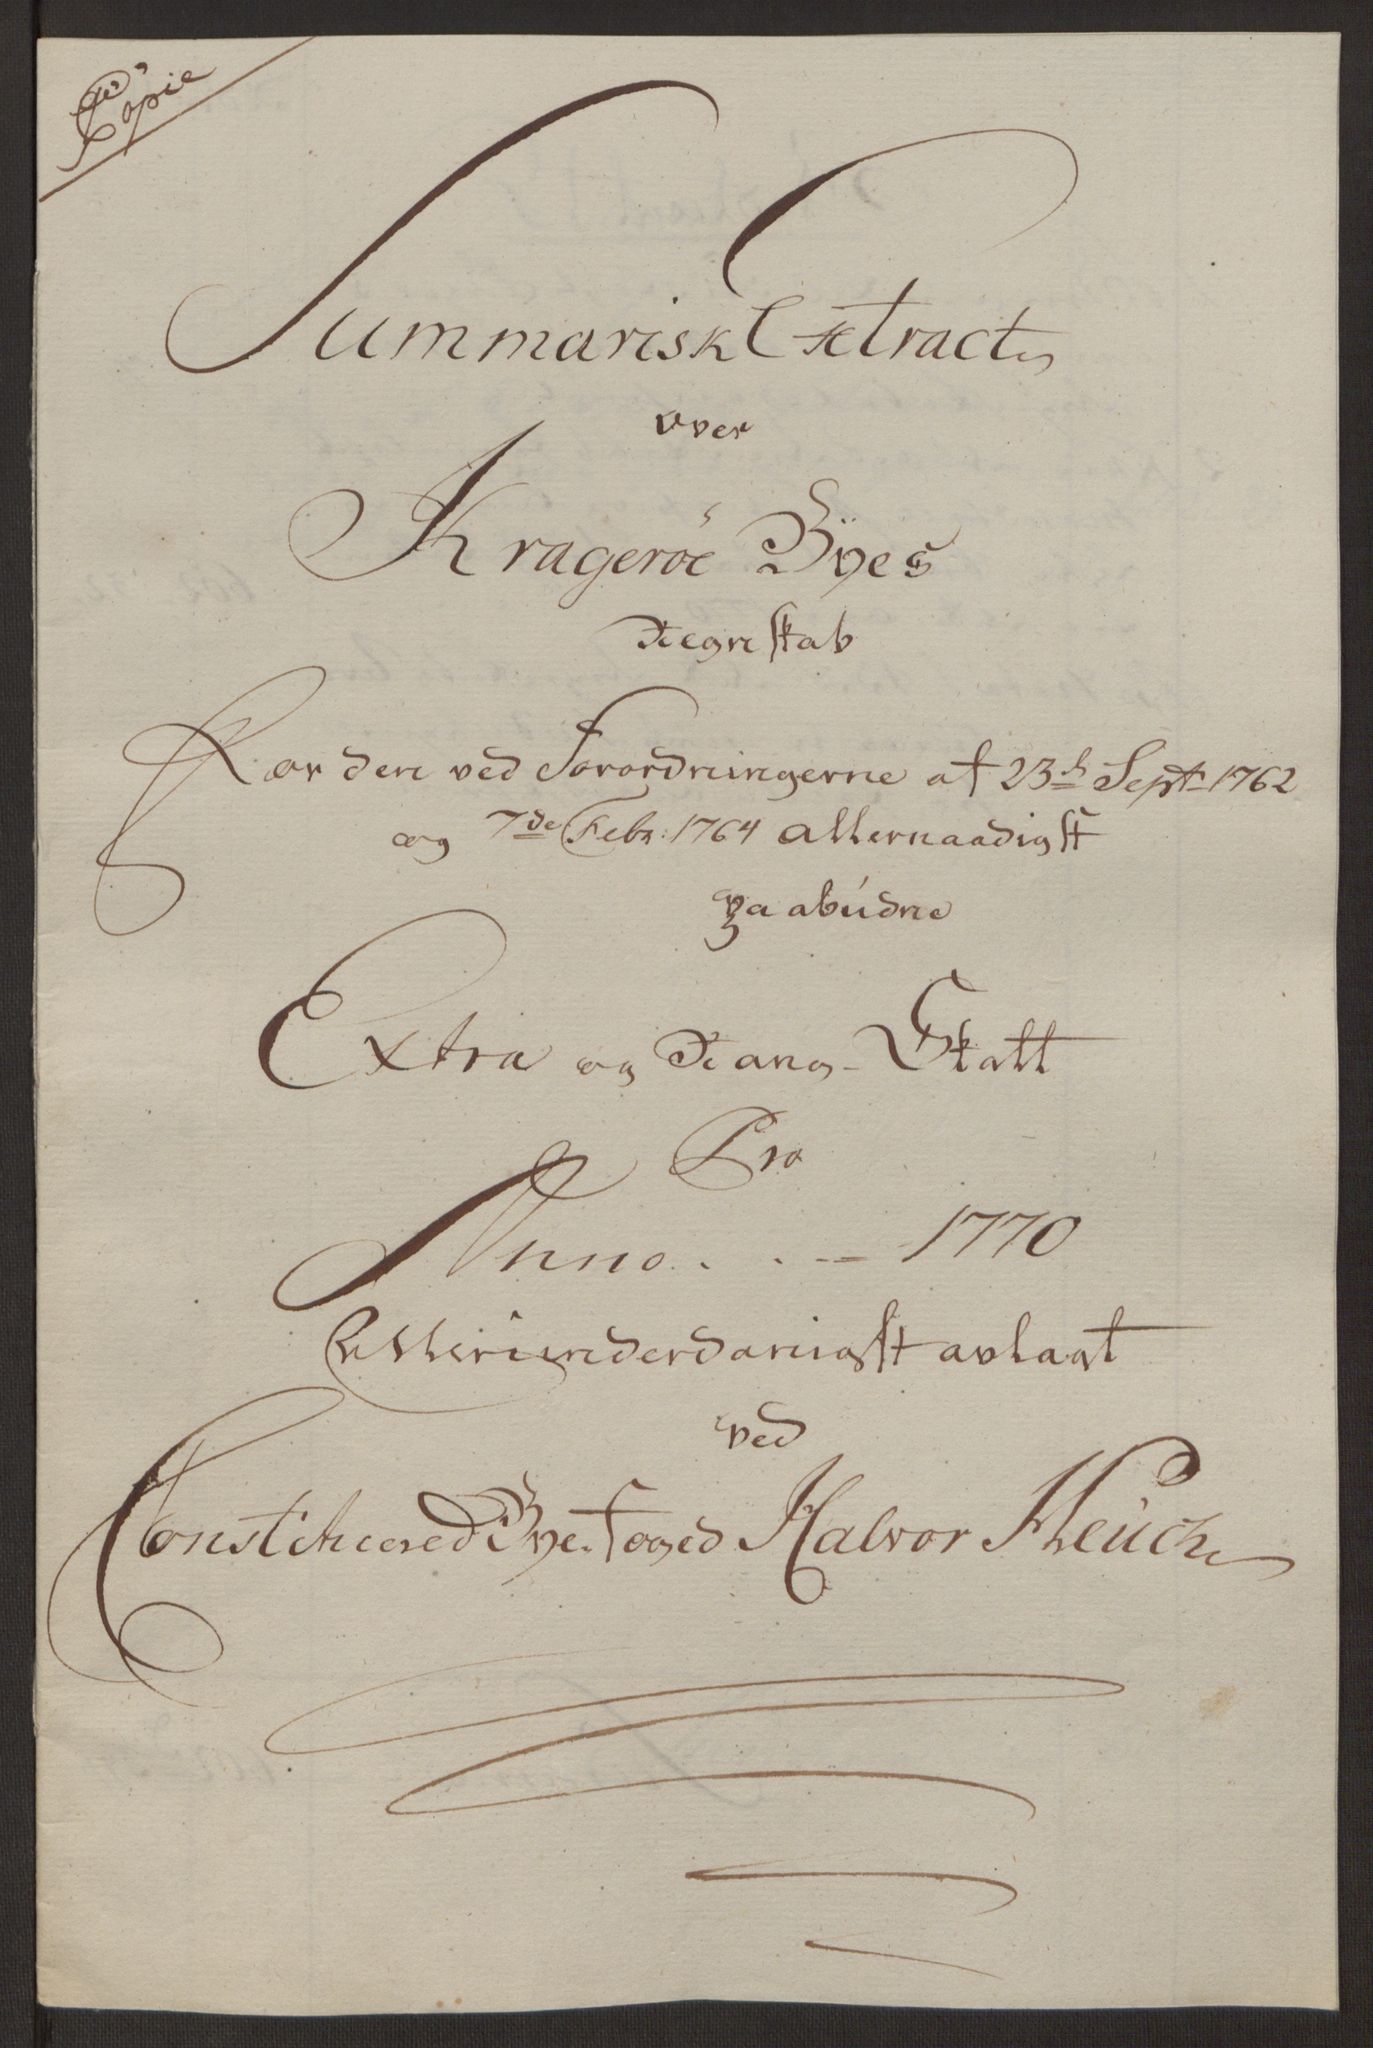 Copie
Summarisk Extract
over
Krageröe Byes
Regnskab
For den ved Forordningerne af 23d Sept 1762
og 7de Febr: 1764 allernaadigst
paabudne
Extra og Rang-Skatt
Pro
Anno . . . - 1770
Allerunderdanigst aflagt
ved
Constitueered Bye-Foged Halvor Heuch